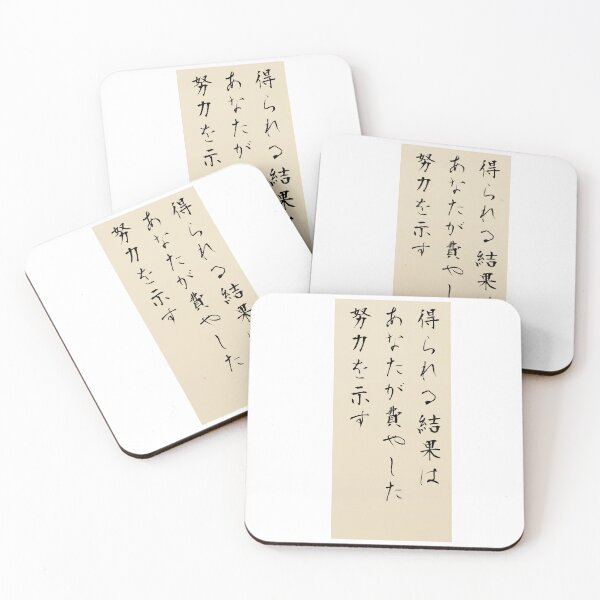 得られる結
あなたが
努力を示
得られる結果
あなたが費やし
努力を示す
得られる結果
あなたが費やした
努力を示す
得られる結果は
あなたが費やした
努力を示す